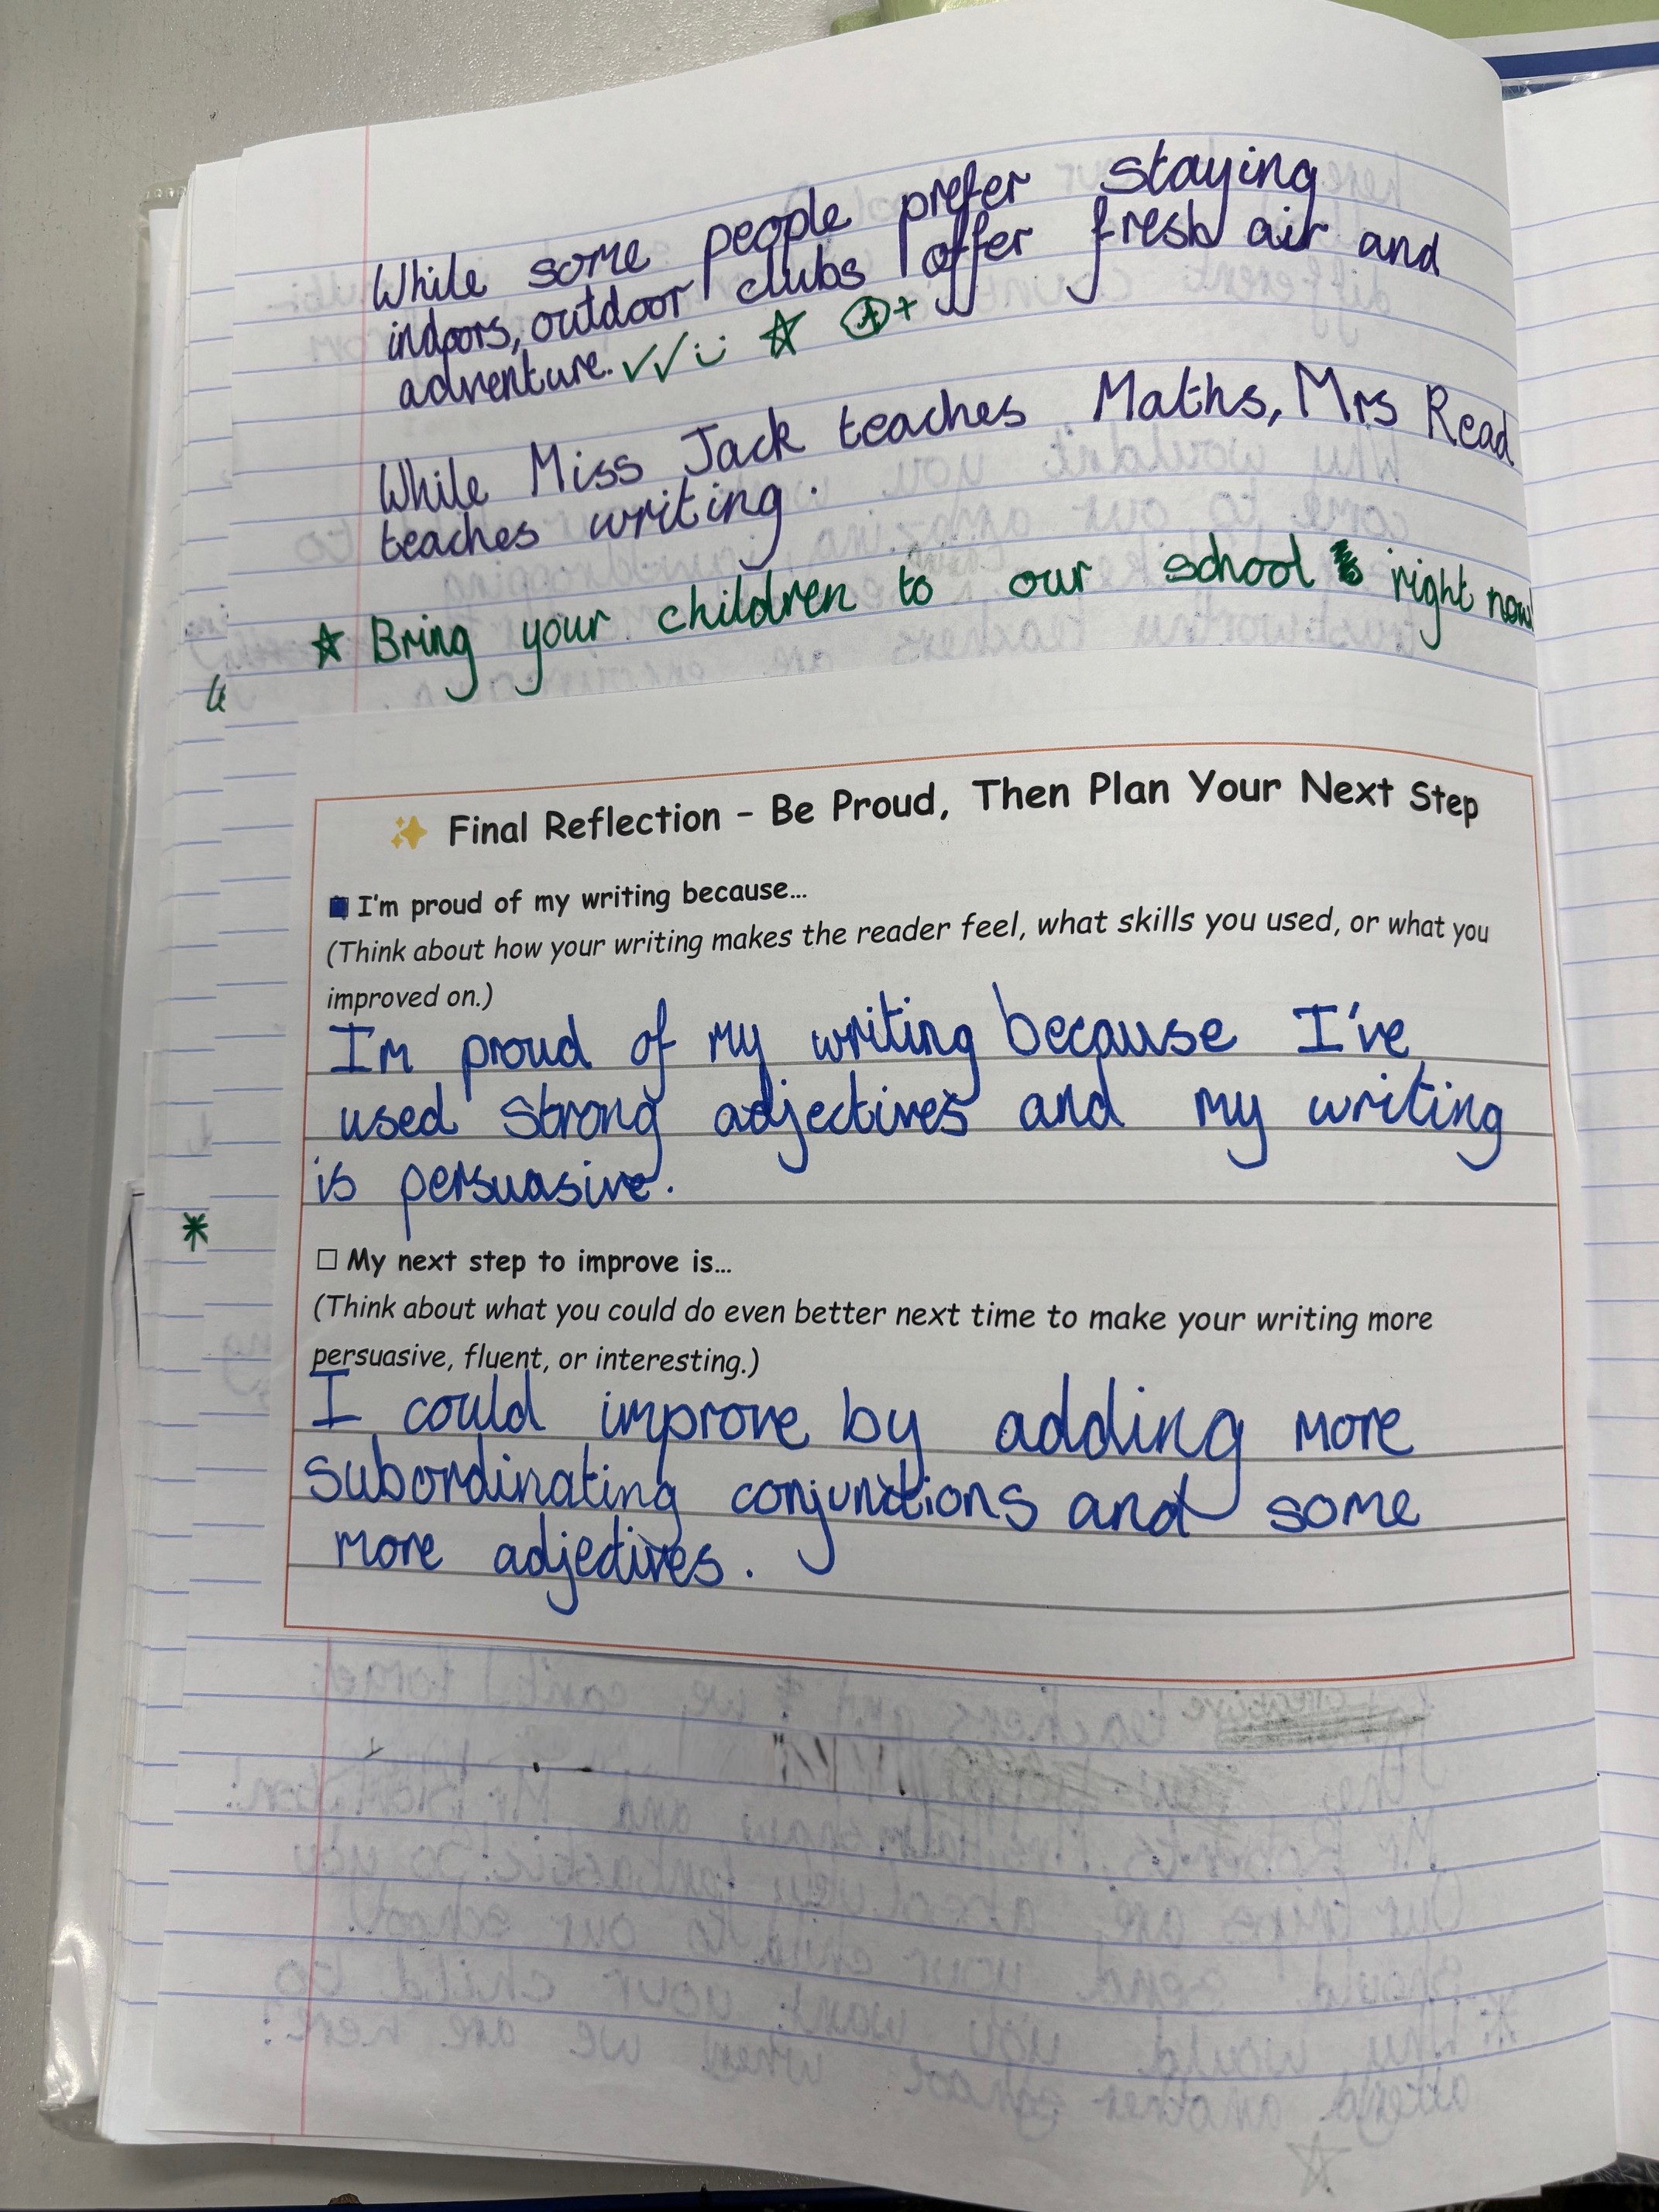 While some people prefer staying
indoors, outdoor clubs offer fresh air and
adventure. ✓✓ A+
While Miss Jack teaches Maths, Mrs Read
teaches writing.
Bring your children to our school right now!
Final Reflection – Be Proud, Then Plan Your Next Step
I'm proud of my writing because...
(Think about how your writing makes the reader feel, what skills you used, or what you
improved on.)
I'm proud of my writing because I've
used strong adjectives and my writing
is persuasive.
My next step to improve is...
(Think about what you could do even better next time to make your writing more
persuasive, fluent, or interesting.)
I could improve by adding more
subordinating conjunctions and some
more adjectives.